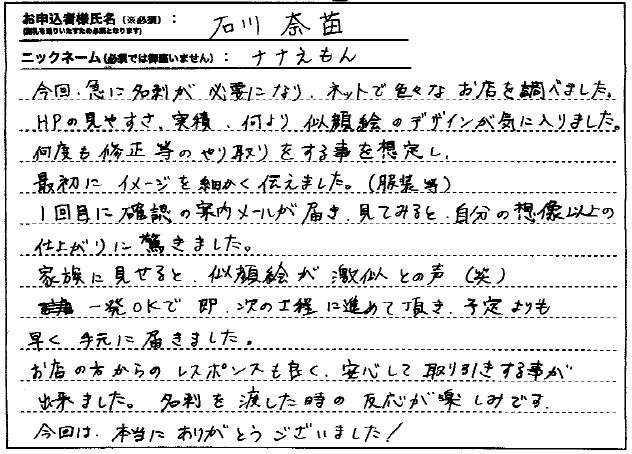 お申込者様氏名(※必須): 石川 奈苗
(御礼を送りいたすため必須となります)
ニックネーム(必須では御座いません): ナナえもん
今回、急に名刺が必要になり、ネットで色々なお店を調べました。
HPの見やすさ、実績、何より似顔絵のデザインが気に入りました。
何度も修正等のやり取りをする事を想定し、
最初にイメージを細かく伝えました。(服装等)
1回目に確認の案内メールが届き、見てみると、自分の想像以上の
仕上がりに驚きました。
家族に見せると、似顔絵が激似との声(笑)
一発OKで即、次の工程に進めて頂き、予定よりも
早く手元に届きました。
お店の方からのレスポンスも良く、安心して取り引きする事が
出来ました。名刺を渡した時の反応が楽しみです。
今回は、本当にありがとうございました!